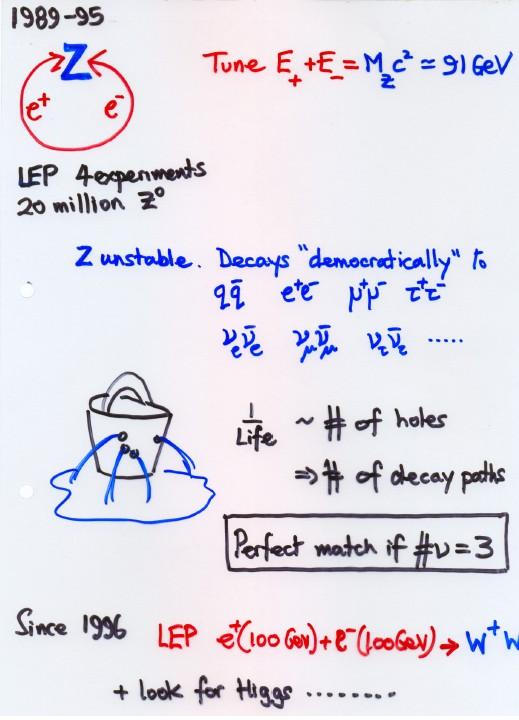 1989-95
Z
e⁺ e⁻
Tune E₊ + E₋ = M_Z c² ≃ 91 GeV
LEP 4 experiments
20 million Z⁰
Z unstable. Decays "democratically" to
qq̄ e⁺e⁻ μ⁺μ⁻ τ⁺τ⁻
νₑν̄ₑ ν_μν̄_μ ν_τν̄_τ .....
1/Life ~ # of holes
⇒ # of decay paths
Perfect match if #ν = 3
Since 1996 LEP e⁺(100 GeV) + e⁻(100 GeV) → W⁺W
+ look for Higgs ........